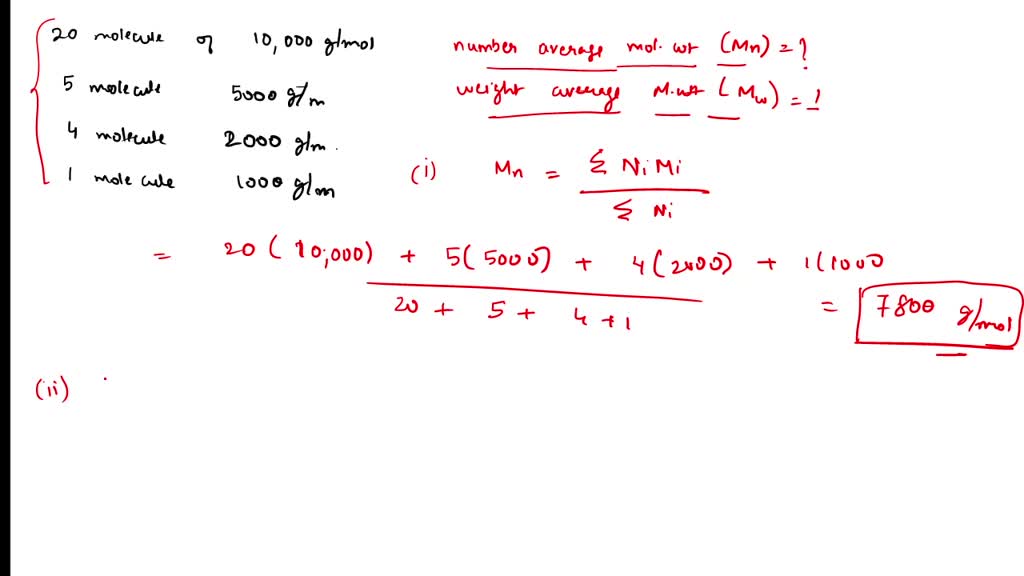 20 molecule of 10,000 g/mol
5 molecule 5000 g/m
4 molecule 2000 g/m.
1 molecule 1000 g/m
number average mol. wt (Mn) = ?
weight average M.wt (Mw) = !
(i) Mn = Σ Ni Mi
Σ Ni
= 20 (10,000) + 5(5000) + 4(2000) + 1(1000
20 + 5 + 4 + 1
= 7800 g/mol
(ii)